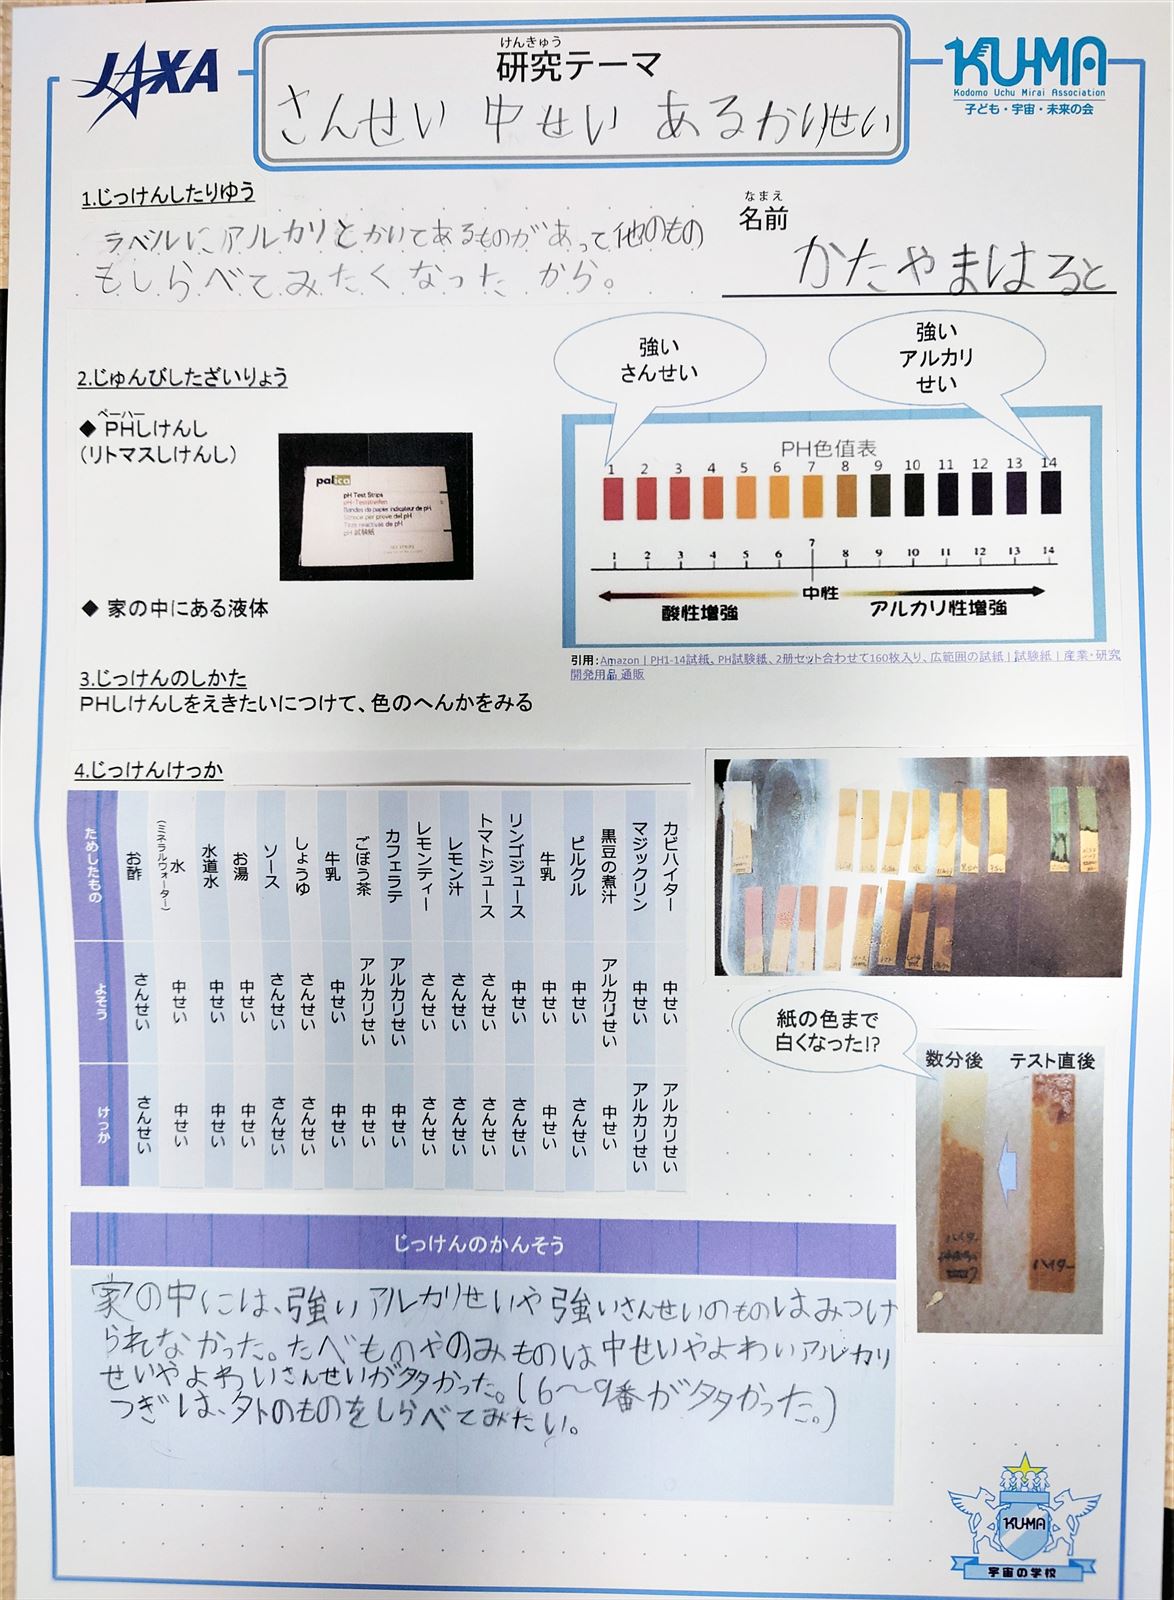 JAXA
けんきゅう
研究テーマ
さんせい 中せい あるかりせい
KU-MA
Kodomo Uchu Mirai Association
子ども・宇宙・未来の会
1.じっけんしたりゆう
ラベルにアルカリとかいてあるものがあって他のもの
もしらべてみたくなったから。
なまえ
名前
かたやまはると
2.じゅんびしたざいりょう
ペーハー
◆ PHしけんし
(リトマスしけんし)
palica
pH Test Strips
pH-Teststreifen
Bandes de papier indicateur de pH
Strisce per prove del pH
Tiras reactivas de pH
pH 試験紙
◆ 家の中にある液体
強い
さんせい
強い
アルカリ
せい
PH色値表
1 2 3 4 5 6 7 8 9 10 11 12 13 14
7
1 2 3 4 5 6 8 9 10 11 12 13 14
酸性増強 中性 アルカリ性増強
引用:Amazon | PH1-14試紙、PH試験紙、2冊セット合わせて160枚入り、広範囲の試紙 | 試験紙 | 産業・研究
開発用品 通販
3.じっけんのしかた
PHしけんしをえきたいにつけて、色のへんかをみる
4.じっけんけっか
ためしたもの よそう けっか
お酢 さんせい さんせい
水(ミネラルウォーター) 中せい 中せい
水道水 中せい 中せい
お湯 中せい 中せい
ソース さんせい さんせい
しょうゆ さんせい さんせい
牛乳 中せい 中せい
ごぼう茶 アルカリせい 中せい
カフェラテ アルカリせい 中せい
レモンティー さんせい さんせい
レモン汁 さんせい さんせい
トマトジュース さんせい さんせい
リンゴジュース 中せい さんせい
牛乳 中せい 中せい
ピルクル 中せい さんせい
黒豆の煮汁 アルカリせい 中せい
マジックリン 中せい アルカリせい
カビハイター 中せい アルカリせい
紙の色まで
白くなった!?
数分後 テスト直後
ハイター
ハイター
じっけんのかんそう
家の中には、強いアルカリせいや強いさんせいのものはみつけ
られなかった。たべものやのみものは中せいやよわいアルカリ
せいやよわいさんせいが多かった。(6〜9番が多かった。)
つぎは、外のものをしらべてみたい。
KU-MA
宇宙の学校